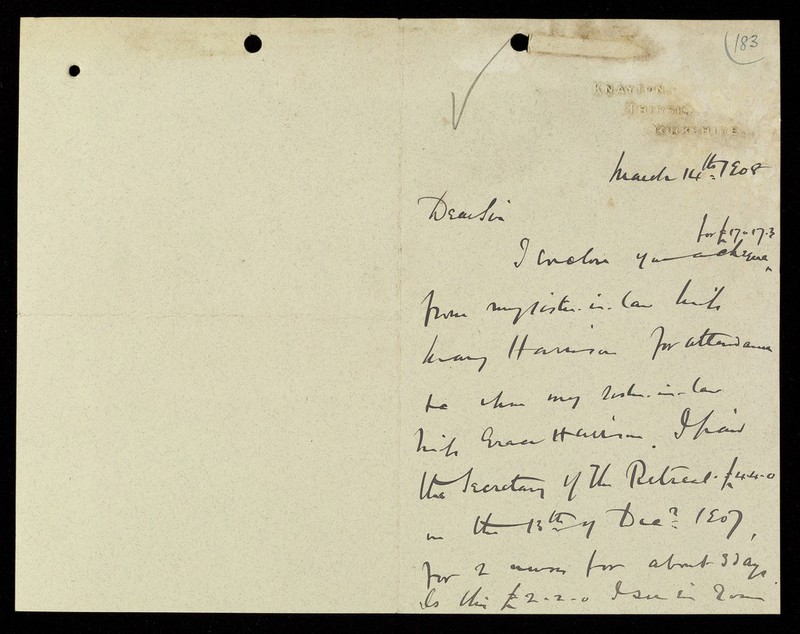 183
KNAYTON.
THIRSK.
YORKSHIRE.
March 14th 1908
Dear Sir
for £17-17-3
I enclose you a cheque
from my sister-in-law Miss
Mary Harrison for attendance
to my sister-in-law
Miss Grace Harrison. I paid
the Secretary of The Retreat. £4-4-0
on the 13th of Decr 1907,
for 2 nurses for about 3 days.
Is this £2-2-0 I see in your